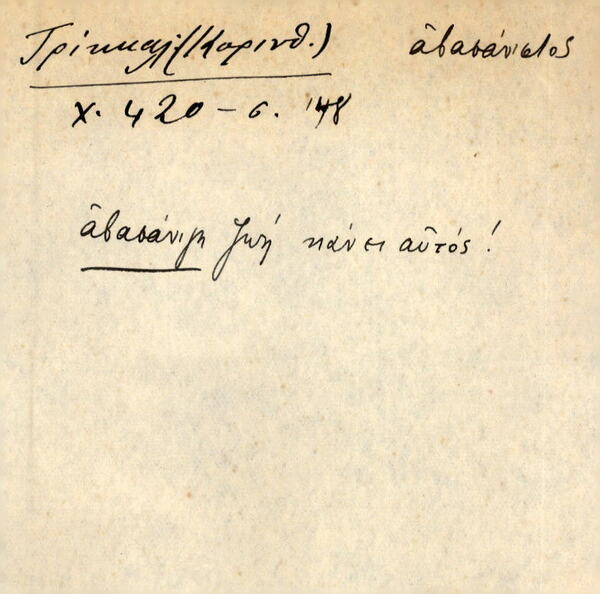 Τρίκκαλ. (Κορινθ.) ἀβασάνιστος
χ. 420 – σ. 148
ἀβασάνιστη ζωὴ κάνει αὐτός!